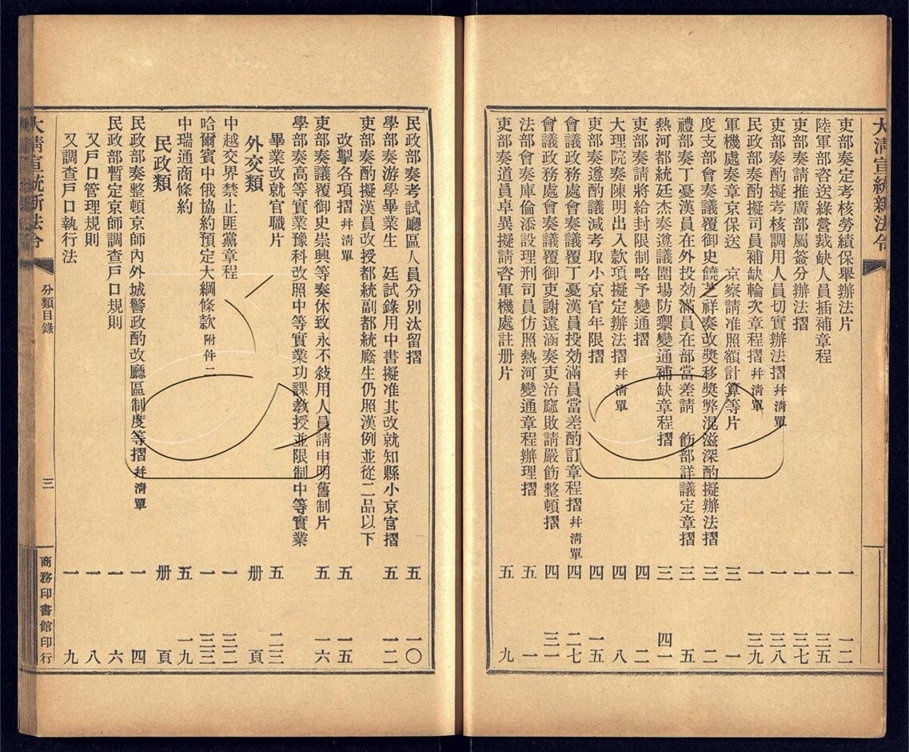 大淸宣統新法令
吏部奏定考核勞績保舉辦法片 一 一二
陸軍部咨送綠營裁缺人員插補章程 一 三五
吏部奏請推廣部屬簽分辦法摺 一 三七
吏部奏考核調用人員切實辦法摺幷淸單 一 三八
民政部奏酌擬司員補缺輪次章程摺幷淸單 一 三九
軍機處奏章京保送 京察請准照額計算等片 三 一
度支部會奏議覆御史饒芝祥奏改奬移奬弊混滋深酌擬辦法摺 三 二
禮部奏丁憂漢員在外投効滿員在部當差請 飭部詳議定章摺 三 五
熱河都統廷杰奏遵議圍場防禦變通補缺章程摺 三 四一
吏部奏請將給封限制略予變通摺 四 二
大理院奏陳明出入款項擬定辦法摺幷淸單 四 八
吏部奏遵酌議減考取小京官年限摺 四 一五
會議政務處會奏議覆丁憂漢員投効滿員當差酌訂章程摺幷淸單 四 二七
會議政務處會奏議覆御史謝遠涵奏吏治窳敗請嚴飭整頓摺 四 三一
法部會奏庫倫添設理刑司員仿照熱河變通章程辦理摺 五 一
吏部奏道員卓異擬請咨軍機處註册片 五 九
民政部奏考試廳區人員分別汰留摺 五 一〇
學部奏游學畢業生 廷試錄用中書擬准其改就知縣小京官摺 五 一二
吏部奏酌擬漢員改授都統副都統廕生仍照漢例並從二品以下
改掣各項摺幷淸單 五 一五
吏部奏議覆御史崇興等奏休致永不敍用人員請申明舊制片 五 一六
學部奏高等實業豫科改照中等實業功課教授並限制中等實業
畢業改就官職片 五 二三
外交類 册 頁
中越交界禁止匪黨章程 一 三二
哈爾賓中俄協約預定大綱條款附件二 一 三三
中瑞通商條約 五 一九
民政類 册 頁
民政部奏整頓京師內外城警政酌改廳區制度等摺幷淸單 一 四
民政部暫定京師調查戶口規則 一 六
又戶口管理規則 一 八
又調查戶口執行法 一 九
大淸宣統新法令 分類目錄 三 商務印書館印行